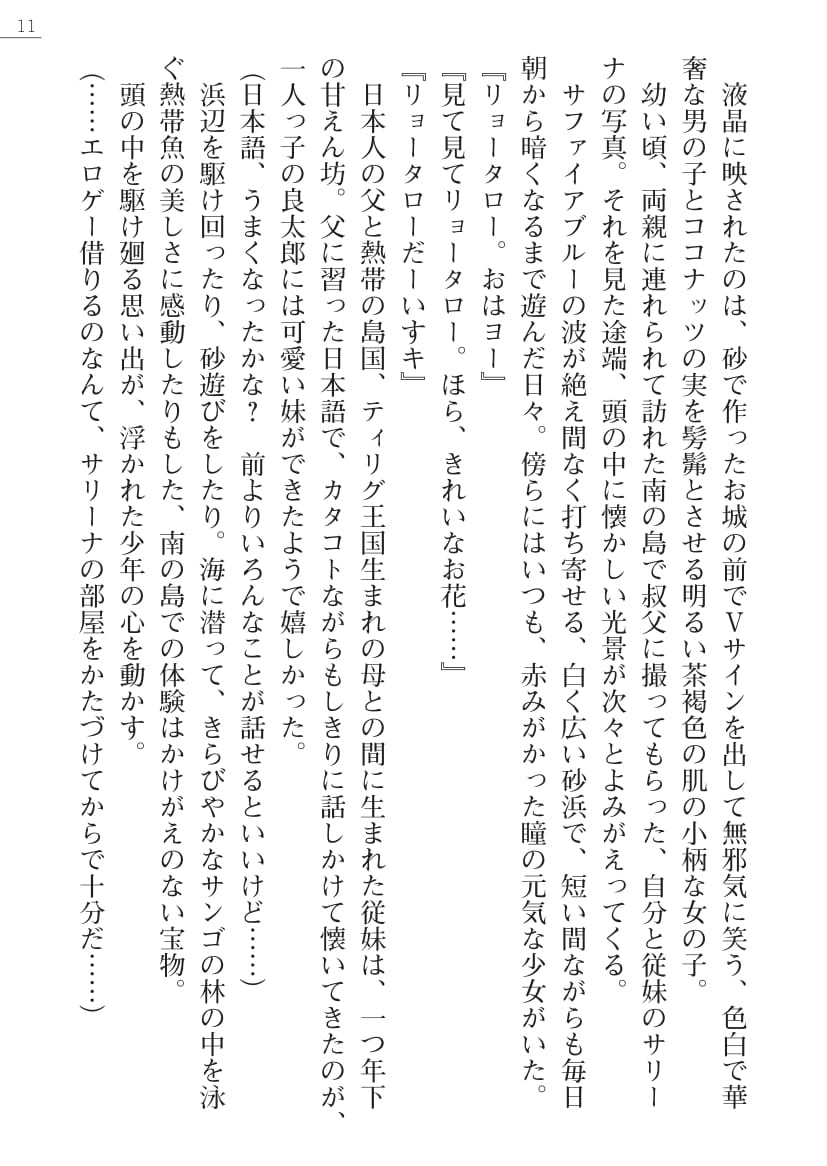 11
　液晶に映されたのは、砂で作ったお城の前でＶサインを出して無邪気に笑う、色白で華
奢な男の子とココナッツの実を髣髴とさせる明るい茶褐色の肌の小柄な女の子。
　幼い頃、両親に連れられて訪れた南の島で叔父に撮ってもらった、自分と従妹のサリー
ナの写真。それを見た途端、頭の中に懐かしい光景が次々とよみがえってくる。
　サファイアブルーの波が絶え間なく打ち寄せる、白く広い砂浜で、短い間ながらも毎日
朝から暗くなるまで遊んだ日々。傍らにはいつも、赤みがかった瞳の元気な少女がいた。
『リョータロー。おはヨー』
『見て見てリョータロー。ほら、きれいなお花……』
『リョータローだーいすキ』
　日本人の父と熱帯の島国、ティリグ王国生まれの母との間に生まれた従妹は、一つ年下
の甘えん坊。父に習った日本語で、カタコトながらもしきりに話しかけて懐いてきたのが、
一人っ子の良太郎には可愛い妹ができたようで嬉しかった。
（日本語、うまくなったかな？　前よりいろんなことが話せるといいけど……）
　浜辺を駆け回ったり、砂遊びをしたり。海に潜って、きらびやかなサンゴの林の中を泳
ぐ熱帯魚の美しさに感動したりもした、南の島での体験はかけがえのない宝物。
　頭の中を駆け廻る思い出が、浮かれた少年の心を動かす。
（……エロゲー借りるのなんて、サリーナの部屋をかたづけてからで十分だ……）